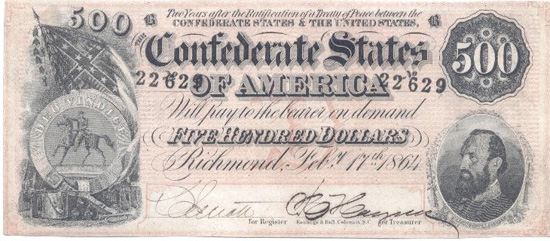 500 B Two Years after the Ratification of a Treaty of Peace between the B
CONFEDERATE STATES & THE UNITED STATES,
THE Confederate States 500
22629 OF AMERICA 22629
Will pay to the bearer on demand
FIVE HUNDRED DOLLARS
Richmond, Feb.y 17th 1864
for Register
for Treasurer